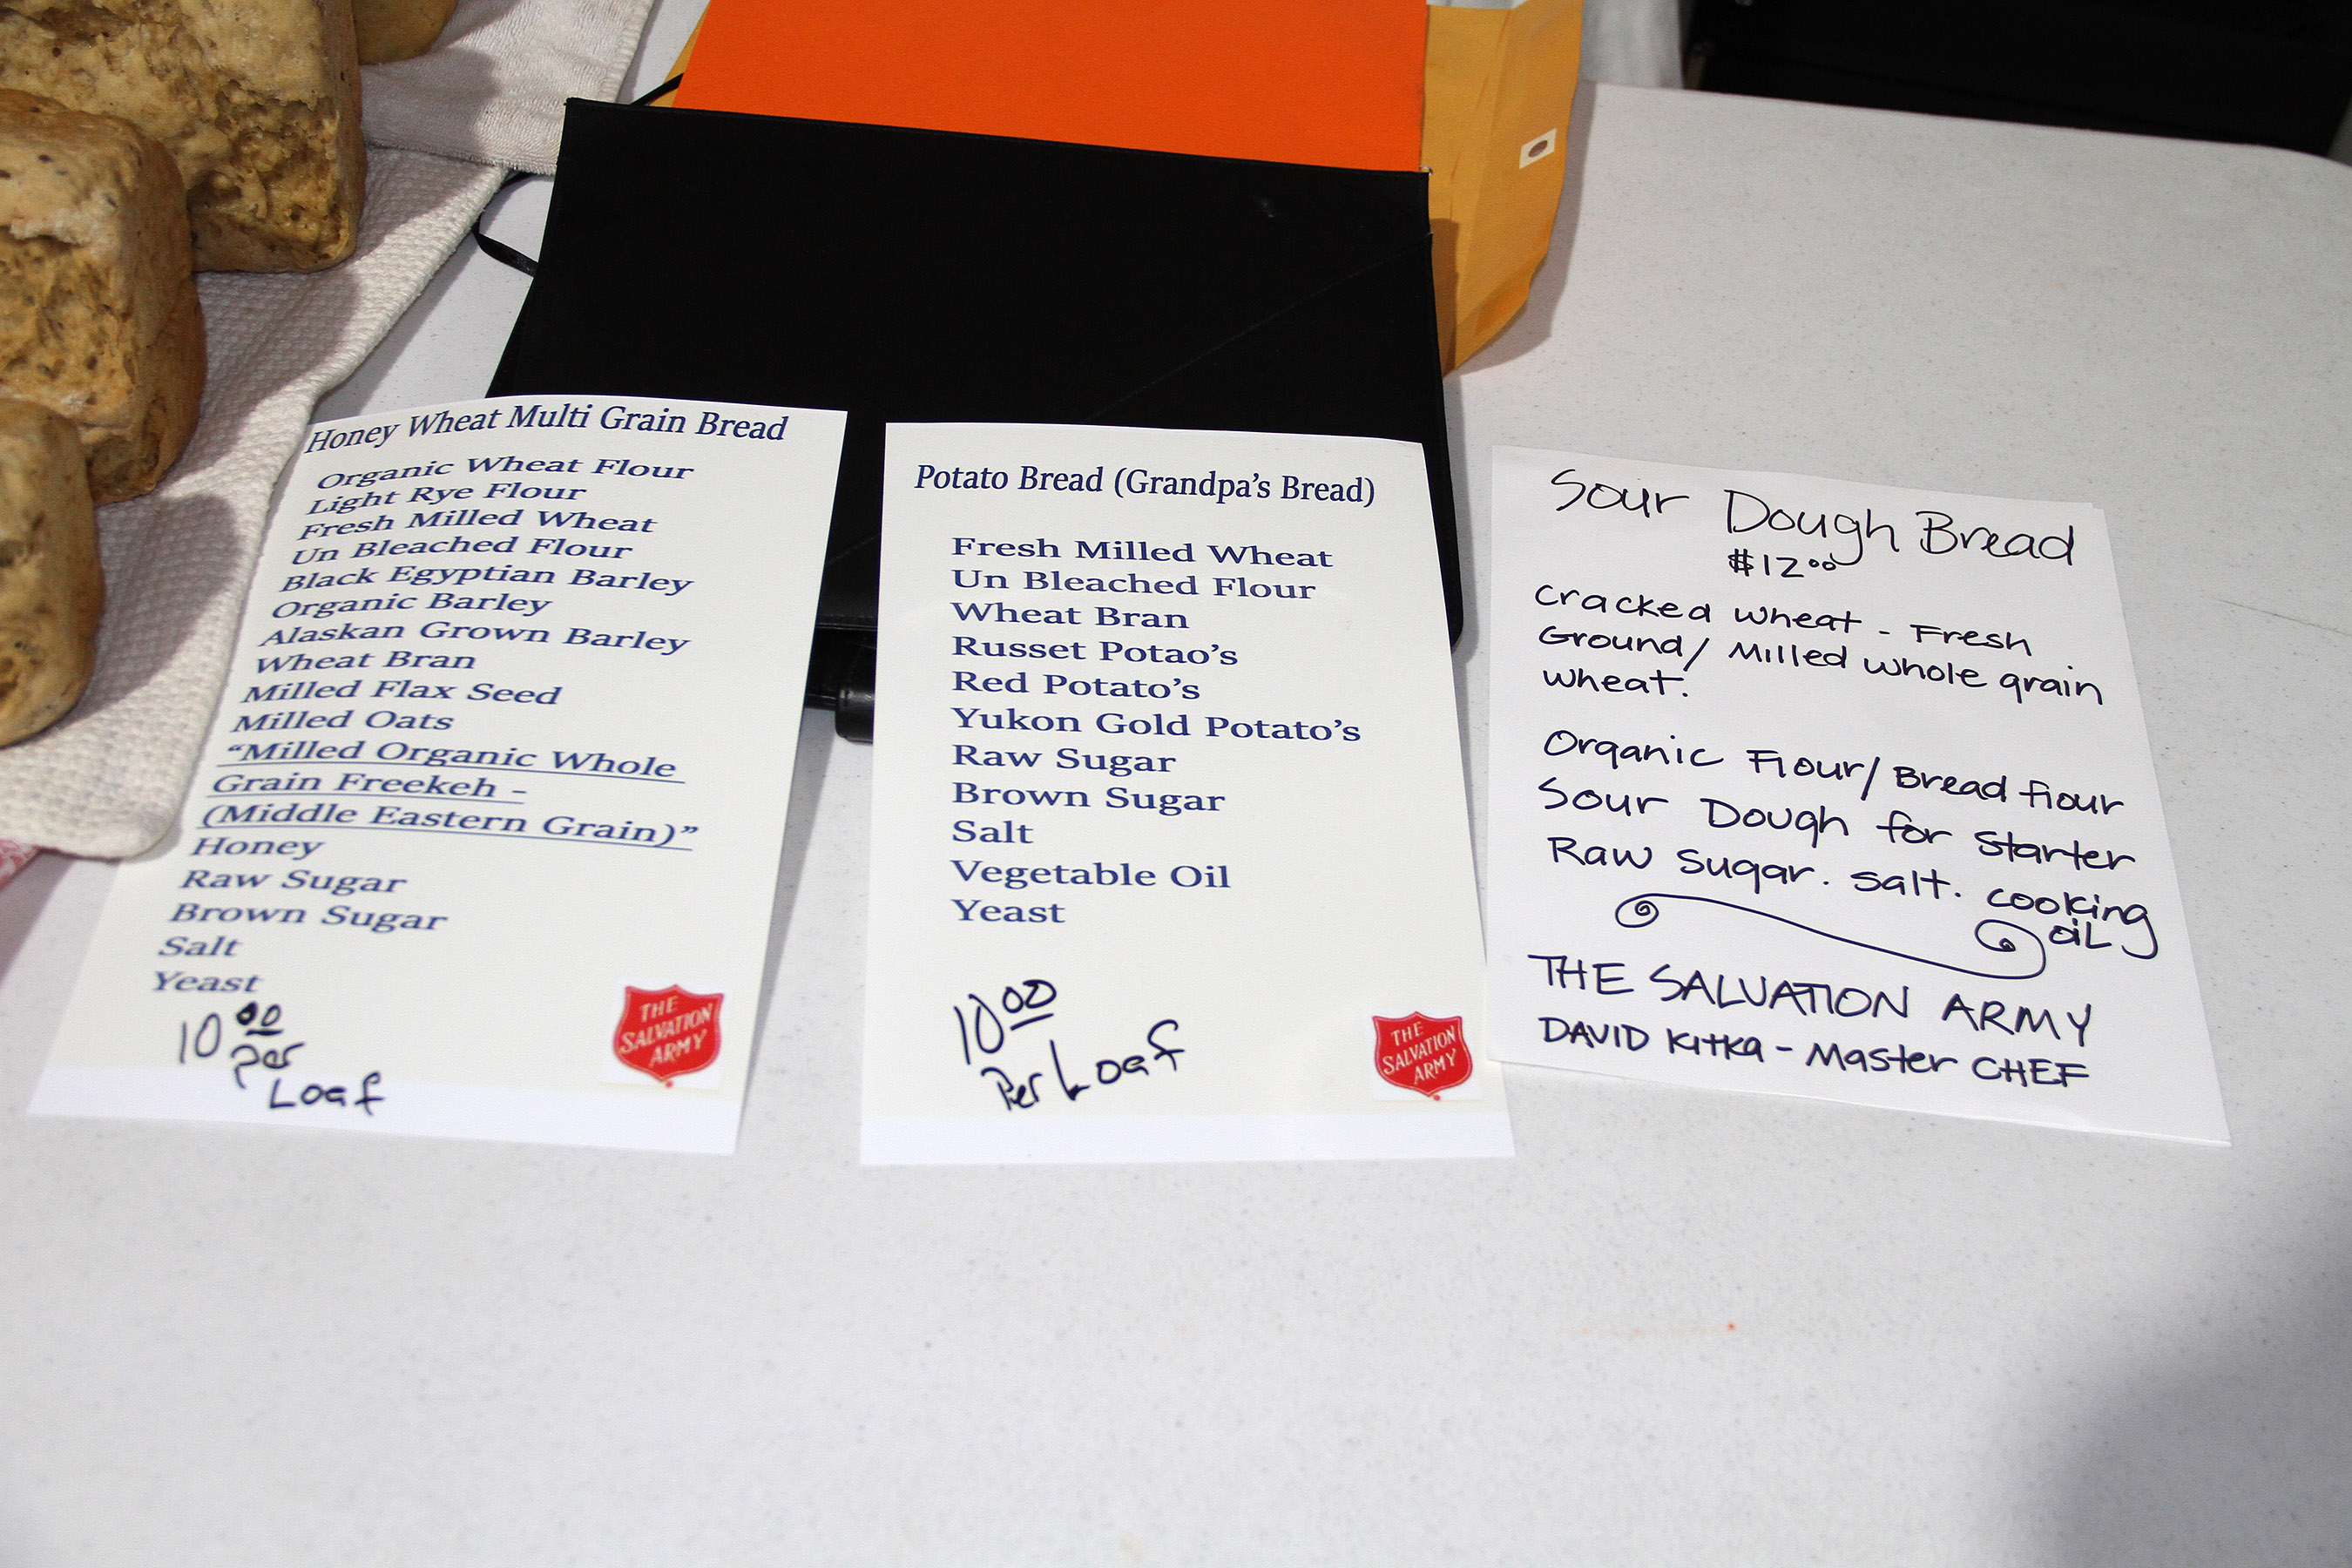 Honey Wheat Multi Grain Bread
Organic Wheat Flour
Light Rye Flour
Fresh Milled Wheat
Un Bleached Flour
Black Egyptian Barley
Organic Barley
Alaskan Grown Barley
Wheat Bran
Milled Flax Seed
Milled Oats
“Milled Organic Whole
Grain Freekeh -
(Middle Eastern Grain)”
Honey
Raw Sugar
Brown Sugar
Salt
Yeast
10 00
Per
Loaf
THE
SALVATION
ARMY
Potato Bread (Grandpa's Bread)
Fresh Milled Wheat
Un Bleached Flour
Wheat Bran
Russet Potao's
Red Potato's
Yukon Gold Potato's
Raw Sugar
Brown Sugar
Salt
Vegetable Oil
Yeast
10 00
Per Loaf
THE
SALVATION
ARMY
Sour Dough Bread
$12 00
Cracked wheat - Fresh
Ground/ Milled whole grain
wheat.
Organic Flour/ Bread flour
Sour Dough for Starter
Raw Sugar. Salt. cooking
oiL
THE SALVATION ARMY
DAVID KitKa - Master CHEF